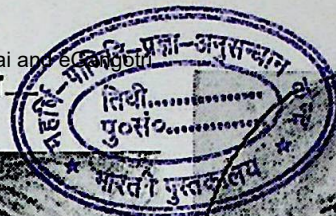 ai and eGangotri
महर्षि-पाणिनि-प्रज्ञा-अनुसन्धान
तिथी...............
पु०सं०...............
भारती पुस्तकालय